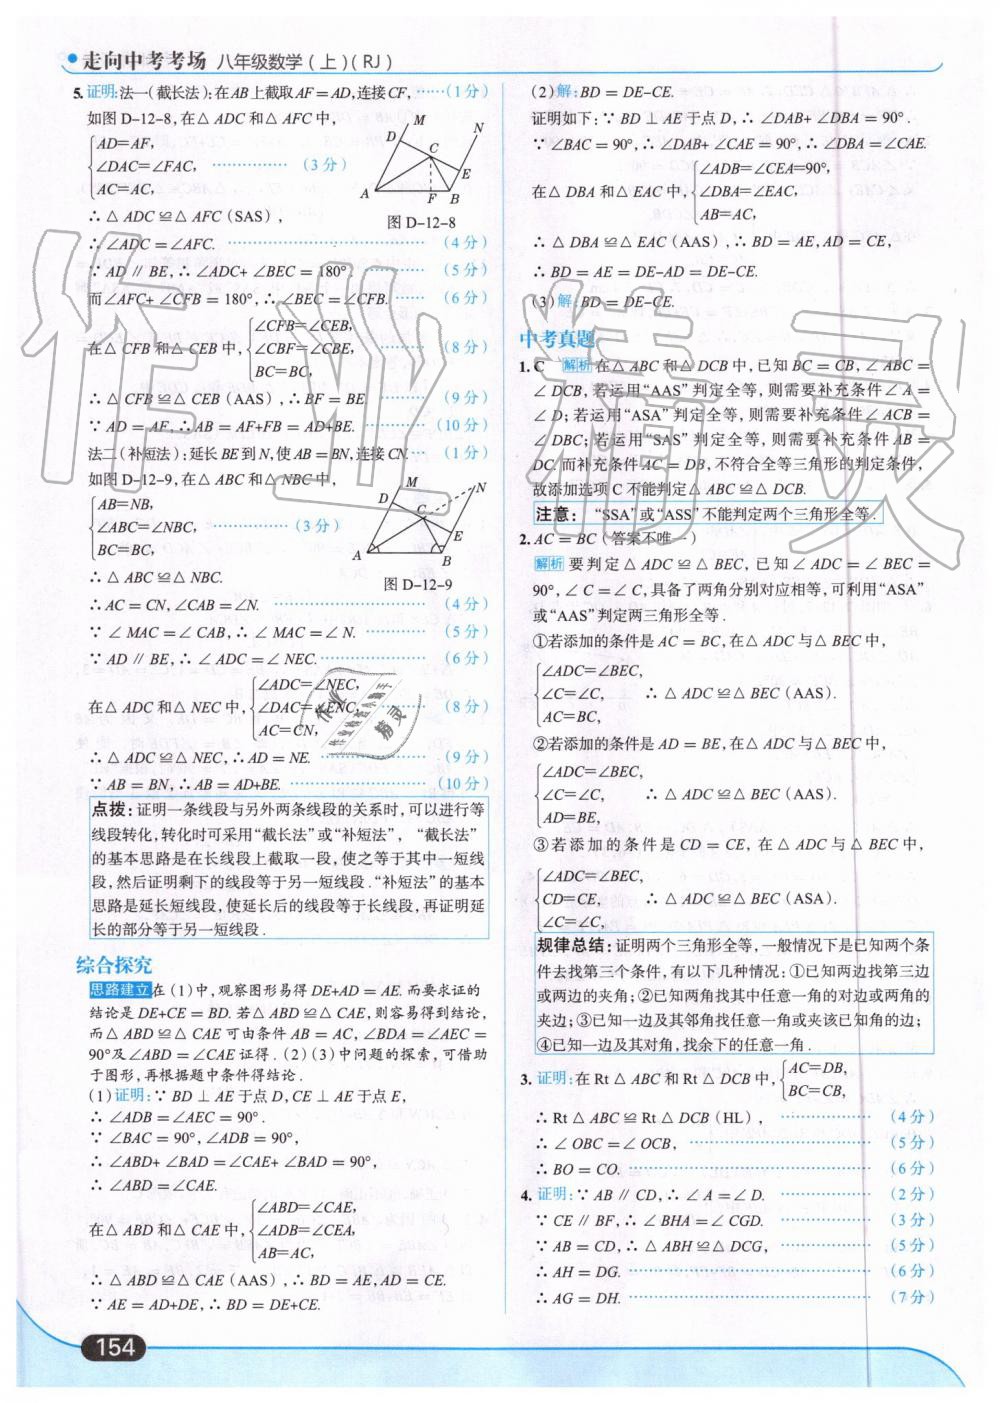 走向中考考场 八年级数学(上)(RJ)
5. 证明:法一(截长法):在AB上截取AF=AD,连接CF, ……(1分)
如图D-12-8,在△ADC和△AFC中,
AD=AF,
∠DAC=∠FAC, ……(3分)
AC=AC,
∴△ADC≌△AFC(SAS),
M N
D C
E
A F B
图D-12-8
∴∠ADC=∠AFC. ……(4分)
∵AD∥BE,∴∠ADC+∠BEC=180°. ……(5分)
而∠AFC+∠CFB=180°,∴∠BEC=∠CFB. ……(6分)
∠CFB=∠CEB,
在△CFB和△CEB中, ∠CBF=∠CBE, ……(8分)
BC=BC,
∴△CFB≌△CEB(AAS),∴BF=BE. ……(9分)
∵AD=AF,∴AB=AF+FB=AD+BE. ……(10分)
法二(补短法):延长BE到N,使AB=BN,连接CN. …(1分)
如图D-12-9,在△ABC和△NBC中,
AB=NB,
∠ABC=∠NBC, ……(3分)
BC=BC,
∴△ABC≌△NBC.
M N
D C
E
A B
图D-12-9
∴AC=CN,∠CAB=∠N. ……(4分)
∵∠MAC=∠CAB,∴∠MAC=∠N. ……(5分)
∵AD∥BE,∴∠ADC=∠NEC. ……(6分)
∠ADC=∠NEC,
在△ADC和△NEC中, ∠DAC=∠ENC, ……(8分)
AC=CN,
∴△ADC≌△NEC,∴AD=NE. ……(9分)
∵AB=BN,∴AB=AD+BE. ……(10分)
点拨:证明一条线段与另外两条线段的关系时,可以进行等
线段转化,转化时可采用“截长法”或“补短法”, “截长法”
的基本思路是在长线段上截取一段,使之等于其中一短线
段,然后证明剩下的线段等于另一短线段.“补短法”的基本
思路是延长短线段,使延长后的线段等于长线段,再证明延
长的部分等于另一短线段.
综合探究
思路建立 在(1)中,观察图形易得DE+AD=AE.而要求证的
结论是DE+CE=BD.若△ABD≌△CAE,则容易得到结论,
而△ABD≌△CAE可由条件AB=AC,∠BDA=∠AEC=
90°及∠ABD=∠CAE证得.(2)(3)中问题的探索,可借助
于图形,再根据题中条件得结论.
(1)证明:∵BD⊥AE于点D,CE⊥AE于点E,
∴∠ADB=∠AEC=90°.
∵∠BAC=90°,∠ADB=90°,
∴∠ABD+∠BAD=∠CAE+∠BAD=90°,
∴∠ABD=∠CAE.
∠ABD=∠CAE,
在△ABD和△CAE中, ∠ADB=∠CEA,
AB=AC,
∴△ABD≌△CAE(AAS),∴BD=AE,AD=CE.
∵AE=AD+DE,∴BD=DE+CE.
(2)解:BD=DE-CE.
证明如下:∵BD⊥AE于点D,∴∠DAB+∠DBA=90°.
∵∠BAC=90°,∴∠DAB+∠CAE=90°,∴∠DBA=∠CAE.
∠ADB=∠CEA=90°,
在△DBA和△EAC中, ∠DBA=∠EAC,
AB=AC,
∴△DBA≌△EAC(AAS),∴BD=AE,AD=CE,
∴BD=AE=DE-AD=DE-CE.
(3)解:BD=DE-CE.
中考真题
1. C 解析 在△ABC和△DCB中,已知BC=CB,∠ABC=
∠DCB,若运用“AAS”判定全等,则需要补充条件∠A=
∠D;若运用“ASA”判定全等,则需要补充条件∠ACB=
∠DBC;若运用“SAS”判定全等,则需要补充条件AB=
DC.而补充条件AC=DB,不符合全等三角形的判定条件,
故添加选项C不能判定△ABC≌△DCB.
注意: “SSA”或“ASS”不能判定两个三角形全等.
2. AC=BC(答案不唯一)
解析 要判定△ADC≌△BEC,已知∠ADC=∠BEC=
90°,∠C=∠C,具备了两角分别对应相等,可利用“ASA”
或“AAS”判定两三角形全等.
①若添加的条件是AC=BC,在△ADC与△BEC中,
∠ADC=∠BEC,
∠C=∠C, ∴△ADC≌△BEC(AAS).
AC=BC,
②若添加的条件是AD=BE,在△ADC与△BEC中,
∠ADC=∠BEC,
∠C=∠C, ∴△ADC≌△BEC(AAS).
AD=BE,
③若添加的条件是CD=CE,在△ADC与△BEC中,
∠ADC=∠BEC,
CD=CE, ∴△ADC≌△BEC(ASA).
∠C=∠C,
规律总结:证明两个三角形全等,一般情况下是已知两个条
件去找第三个条件,有以下几种情况:①已知两边找第三边
或两边的夹角;②已知两角找其中任意一角的对边或两角的
夹边;③已知一边及其邻角找任意一角或夹该已知角的边;
④已知一边及其对角,找余下的任意一角.
3. 证明:在Rt△ABC和Rt△DCB中, AC=DB,
BC=CB,
∴Rt△ABC≌Rt△DCB(HL), ……(4分)
∴∠OBC=∠OCB, ……(5分)
∴BO=CO. ……(6分)
4. 证明:∵AB∥CD,∴∠A=∠D. ……(2分)
∵CE∥BF,∴∠BHA=∠CGD. ……(3分)
∵AB=CD,∴△ABH≌△DCG, ……(5分)
∴AH=DG. ……(6分)
∴AG=DH. ……(7分)
154
作业精灵